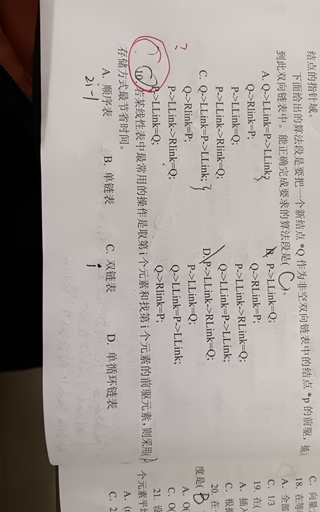 结点的指针域。
下面给出的算法段是要把一个新结点 *Q 作为非空双向链表中的结点 *p 的前驱，插
到此双向链表中。能正确完成要求的算法段是( C )。
A. Q->LLink=P->LLink;
Q->Rlink=P;
P->LLink=Q;
P->LLink->Rlink=Q;
B. P->LLink=Q;
Q->RLink=P;
P->LLink->RLink=Q;
Q->LLink=P->LLink;
C. Q->LLink=P->LLink;
Q->Rlink=P;
P->LLink->Rlink=Q;
P->LLink=Q;
D. P->LLink->RLink=Q;
P->LLink=Q;
Q->LLink=P->LLink;
Q->RLink=P;
?
10
若某线性表中最常用的操作是取第 i 个元素和找第 i 个元素的前驱元素，则采用(
存储方式最节省时间。
A. 顺序表 B. 单链表 C. 双链表 D. 单循环链表
2i-1
i
C. 向量
18. 在等
A. 全部
C. 1/3
19. 在(
A. 插入
C. 根据
20. 在
度是( B
A. O(
C. O(
21. 设
个元素平均
A. (
C. 2